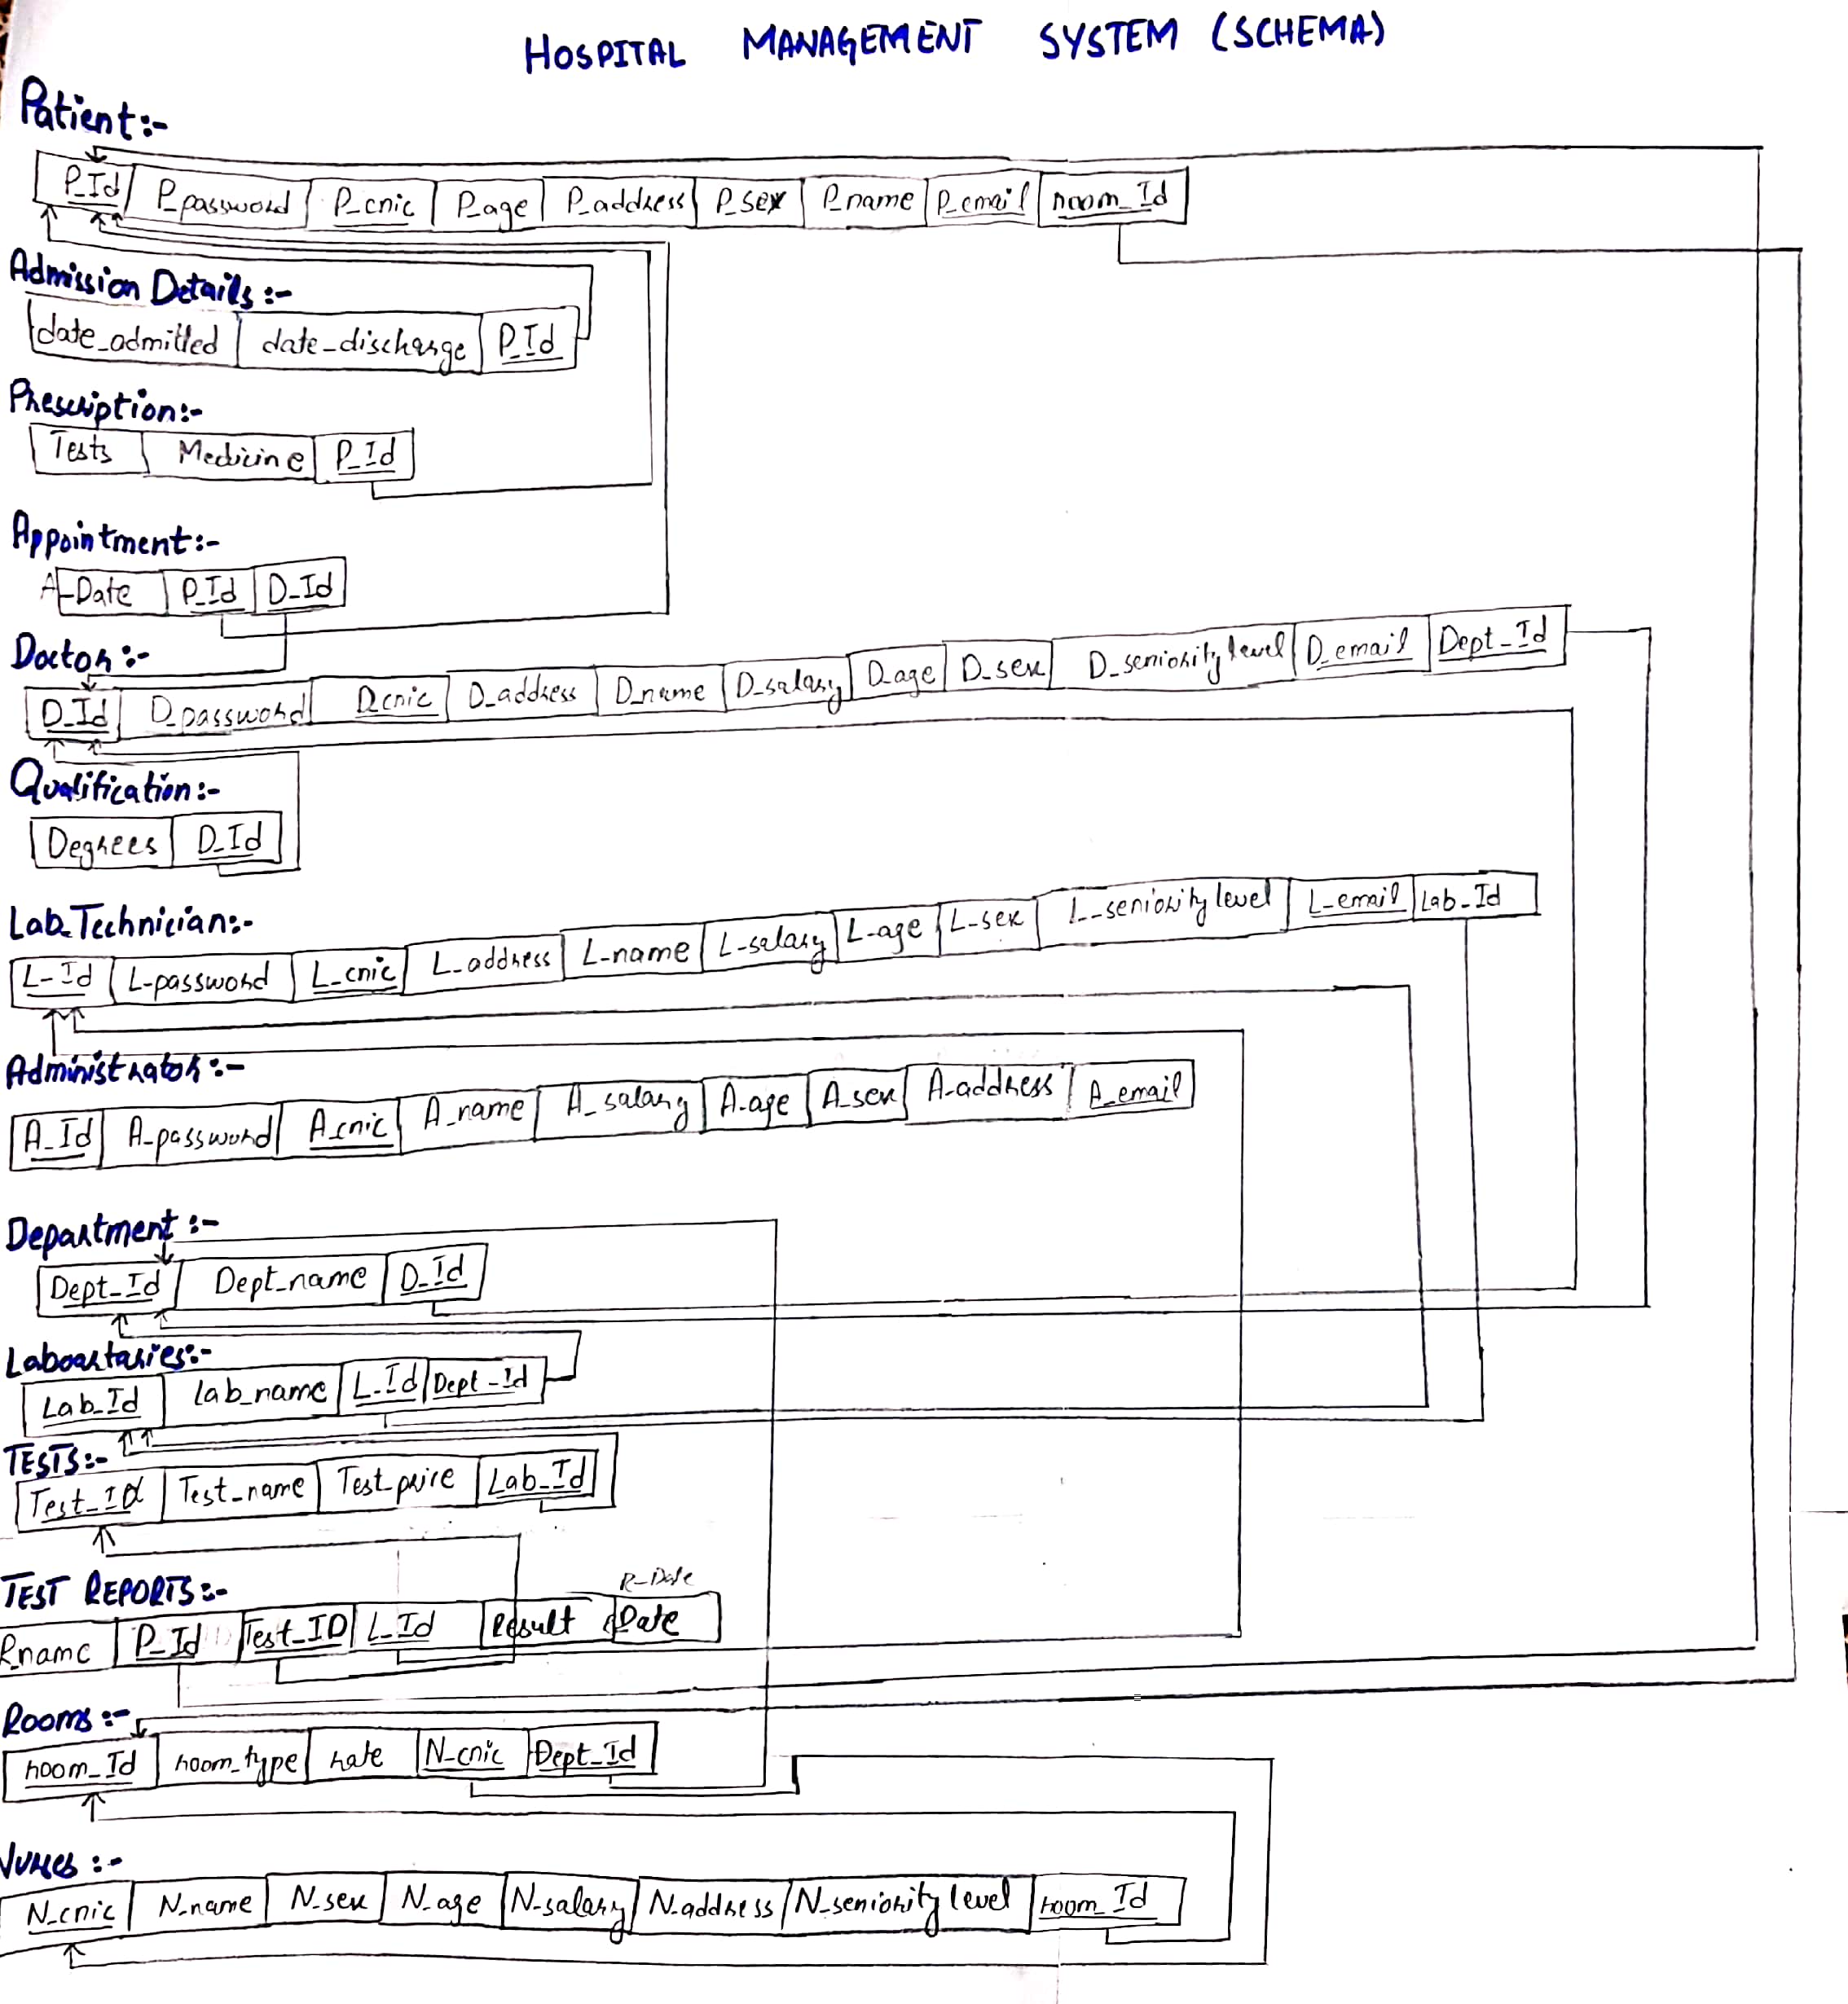 HOSPITAL MANAGEMENT SYSTEM (SCHEMA)
Patient:-
P_Id P_password P_cnic P_age P_address P_sex P_name P_email room_Id
Admission Details:-
date_admitted date_discharge P_Id
Prescription:-
Tests Medicine P_Id
Appointment:-
A-Date P_Id D_Id
Doctor:-
D_Id D_password D_cnic D_address D_name D_salary D_age D_sex D_seniority level D_email Dept_Id
Qualification:-
Degrees D_Id
Lab_Technician:-
L_Id L-password L_cnic L_address L-name L-salary L-age L-sex L_seniority level L-email Lab_Id
Administrator:-
A_Id A-password A_cnic A_name A_salary A-age A_sex A-address A_email
Department:-
Dept_Id Dept_name D_Id
Laboartaries:-
Lab_Id lab_name L_Id Dept_Id
TESTS:-
Test_Id Test_name Test_price Lab_Id
TEST REPORTS:-
R-Date
R_name P_Id Test_ID L_Id Result Date
Rooms:-
room_Id room_type rate N_cnic Dept_Id
Nurses:-
N_cnic N_name N_sex N_age N-salary N-address N_seniority level room_Id